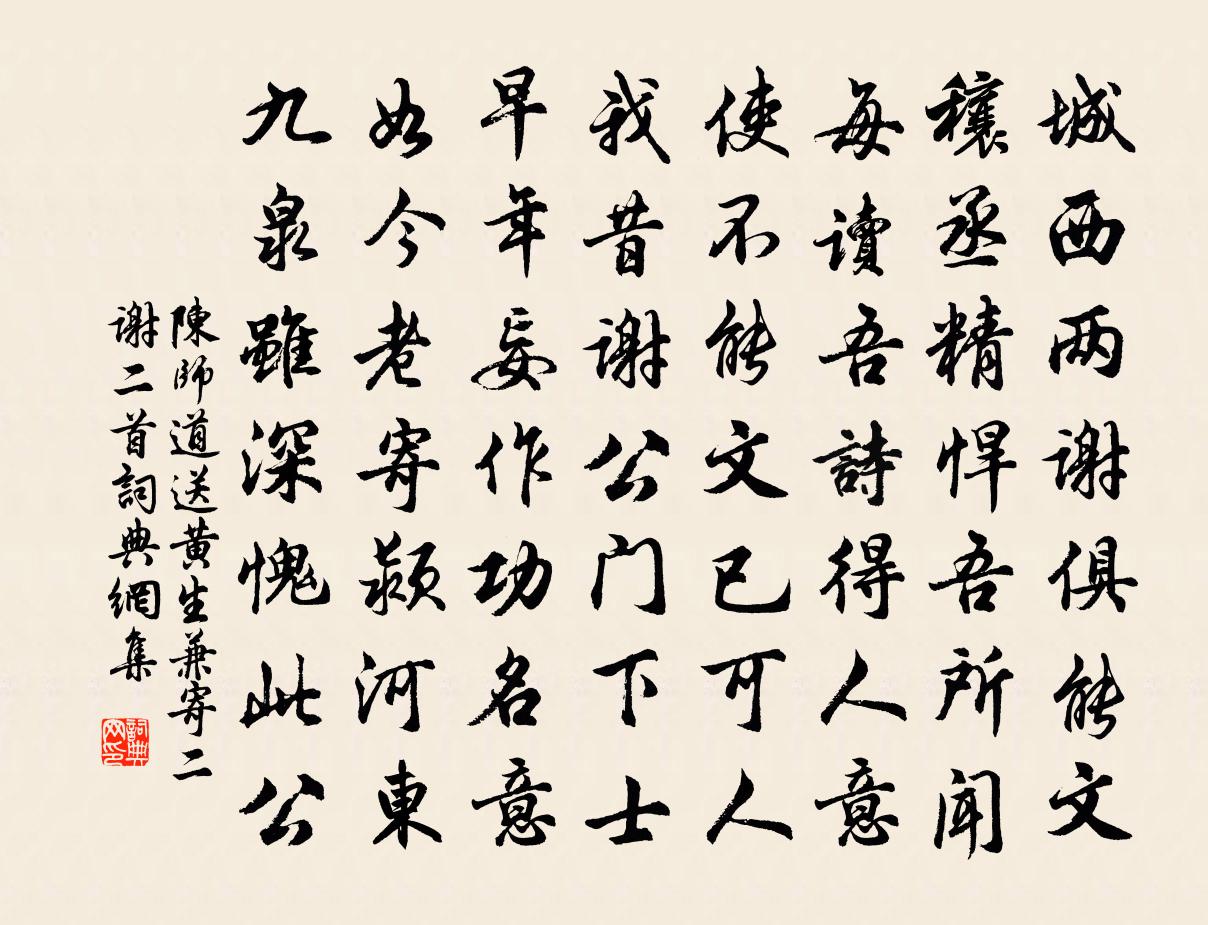 城西两谢俱能文
穰丞精悍吾所闻
每读吾詩得人意
使不能文已可人
我昔谢公门下士
早年妄作功名意
如今老寄颍河東
九泉雖深愧此公
陳師道送黄生兼寄二
谢二首詞典網集
詞典
网印